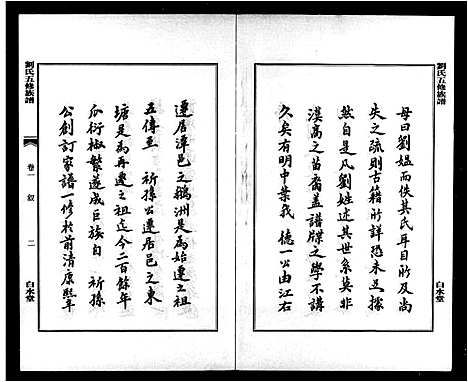 劉氏五修族譜
白水堂
母曰劉媼而佚其氏耳目所及尚
失之疏則古籍所詳恐未足據
然自是凡劉姓述其世系莫非
漢高之苗裔蓋譜牒之學不講
久矣有明中葉我 德一公由江右
遷居潭邑之鵝洲是為始遷之祖
五傳至 祈孫公遷居邑之東
塘是為再遷之祖迄今二百餘年
瓜衍椒繁遂成巨族自 祈孫
公創訂家譜一修於前清康熙年
劉氏五修族譜
卷一 叙 二
白水堂